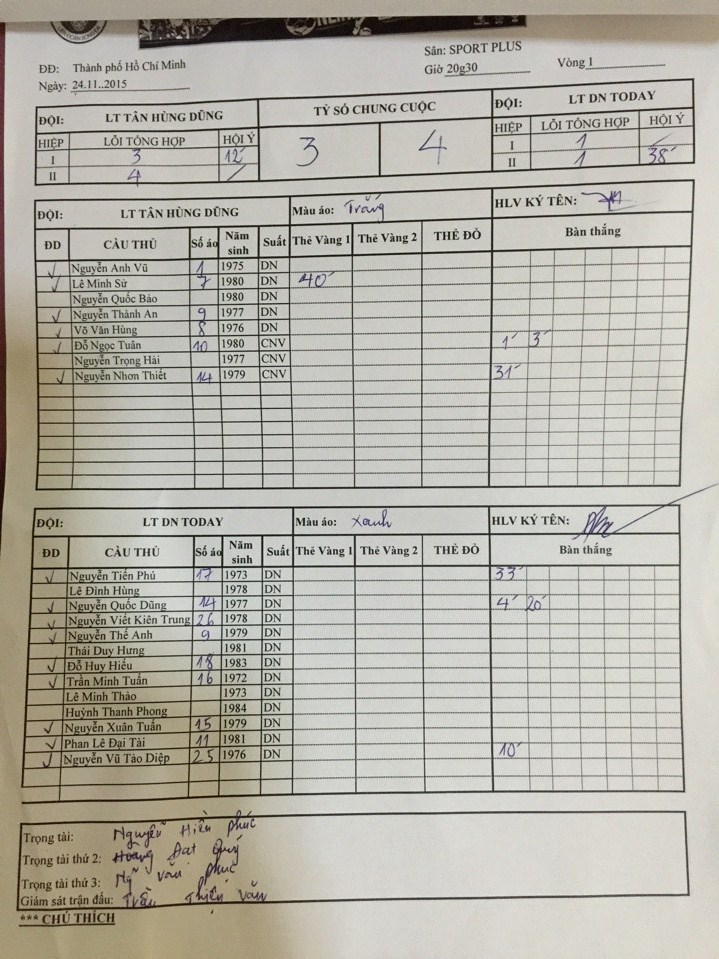 Sân: SPORT PLUS
ĐĐ: Thành phố Hồ Chí Minh
Giờ 20g30 Vòng 1
Ngày: 24.11..2015
ĐỘI: LT TÂN HÙNG DŨNG TỶ SỐ CHUNG CUỘC ĐỘI: LT DN TODAY
HIỆP LỖI TỔNG HỢP HỘI Ý 3 4 HIỆP LỖI TỔNG HỢP HỘI Ý
I 3 12' I 1
II 4 II 1 38'
ĐỘI: LT TÂN HÙNG DŨNG Màu áo: Trắng HLV KÝ TÊN:
ĐD CẦU THỦ Số áo Năm sinh Suất Thẻ Vàng 1 Thẻ Vàng 2 THẺ ĐỎ Bàn thắng
Nguyễn Anh Vũ 1 1975 DN
Lê Minh Sử 7 1980 DN 40'
Nguyễn Quốc Bảo 1980 DN
Nguyễn Thành An 9 1977 DN
Võ Văn Hùng 8 1976 DN
Đỗ Ngọc Tuân 10 1980 CNV 1' 3'
Nguyễn Trọng Hải 1977 CNV
Nguyễn Nhơn Thiết 14 1979 CNV 31'
ĐỘI: LT DN TODAY Màu áo: Xanh HLV KÝ TÊN:
ĐD CẦU THỦ Số áo Năm sinh Suất Thẻ Vàng 1 Thẻ Vàng 2 THẺ ĐỎ Bàn thắng
Nguyễn Tiến Phú 17 1973 DN 33'
Lê Đình Hùng 1978 DN
Nguyễn Quốc Dũng 14 1977 DN 4' 20'
Nguyễn Viết Kiên Trung 26 1978 DN
Nguyễn Thế Anh 9 1979 DN
Thái Duy Hưng 1981 DN
Đỗ Huy Hiếu 18 1983 DN
Trần Minh Tuấn 16 1972 DN
Lê Minh Thảo 1973 DN
Huỳnh Thanh Phong 1984 DN
Nguyễn Xuân Tuấn 15 1979 DN
Phan Lê Đại Tài 11 1981 DN
Nguyễn Vũ Tảo Diệp 25 1976 DN 10'
Trọng tài: Nguyễn Hiền Phúc
Trọng tài thứ 2: Hoàng Đạt Quý
Trọng tài thứ 3: Ng Văn Phúc
Giám sát trận đấu: Trần Thiện Văn
*** CHÚ THÍCH